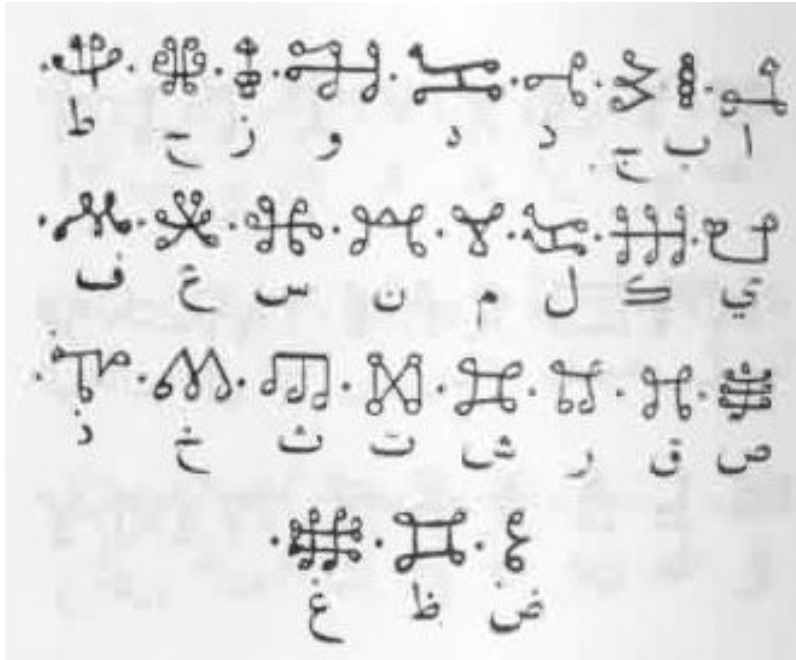 ا ب ج د د و ز ح ط
ي ك ل م ن س ع ف
ص ق ر ش ت ث خ ذ
ض ظ غ